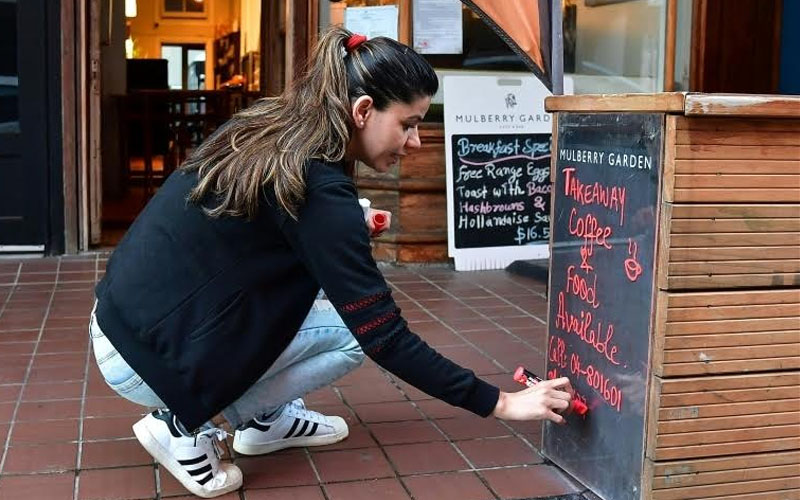 MULBERRY GARD
Breakfast Spe
Free Range Eggs
Toast with Baco
Hashbrowns &
Hollandaise Sau
$16.5
MULBERRY GARDEN
TAKEAWAY
Coffee
&
Food
Available.
Call: 04-801601